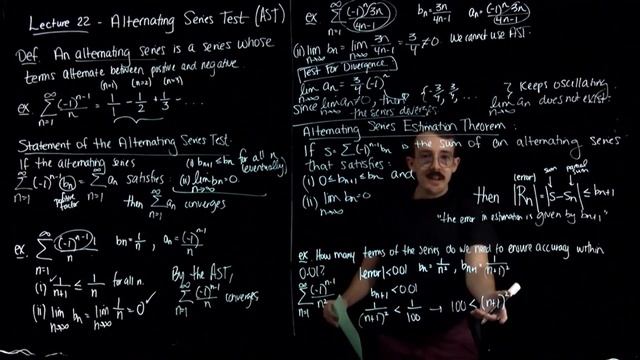 Lecture 22 - Alternating Series Test (AST)
Def: An alternating series is a series whose
terms alternate between positive and negative.
(n=1) (n=2) (n=3)
ex ∑_{n=1}^∞ (-1)^{n-1}/n = 1/1 - 1/2 + 1/3 - ...
Statement of the Alternating Series Test:
If the alternating series
∑_{n=1}^∞ (-1)^{n-1} (bn) = ∑_{n=1}^∞ an satisfies:
positive factor
(i) bn+1 ≤ bn for all n (eventually)
(ii) lim_{n→∞} bn = 0.
then ∑_{n=1}^∞ an converges
ex ∑_{n=1}^∞ (-1)^{n-1} 1/n bn = 1/n, an = (-1)^{n-1}/n
(i) 1/n+1 ≤ 1/n for all n.
(ii) lim_{n→∞} bn = lim_{n→∞} 1/n = 0 ✓
By the AST,
∑_{n=1}^∞ (-1)^{n-1}/n converges
ex ∑_{n=1}^∞ (-1)^n 3n/4n-1 bn = 3n/4n-1 an = (-1)^n 3n/4n-1
(ii) lim_{n→∞} bn = lim_{n→∞} 3n/4n-1 = 3/4 ≠ 0 We cannot use AST
Test for Divergence
lim_{n→∞} an = 3/4 (-1)^n
since lim an ≠ 0, then
the series diverges
Keeps oscillating
lim_{n→∞} an does not exist.
Alternating Series Estimation Theorem:
If S = ∑(-1)^{n-1} bn is the sum of an alternating series
that satisfies:
(i) 0 ≤ bn+1 ≤ bn and
(ii) lim_{n→∞} bn = 0
|error| sum partial sum
then |Rn| = |S - Sn| ≤ bn+1
"the error in estimation is given by bn+1"
ex How many terms of the series do we need to ensure accuracy within
0.01?
∑_{n=1}^∞ (-1)^{n-1}/n²
|error| < 0.01 bn = 1/n², bn+1 = 1/(n+1)²
bn+1 < 0.01
1/(n+1)² < 1/100 → 100 < (n+1)²